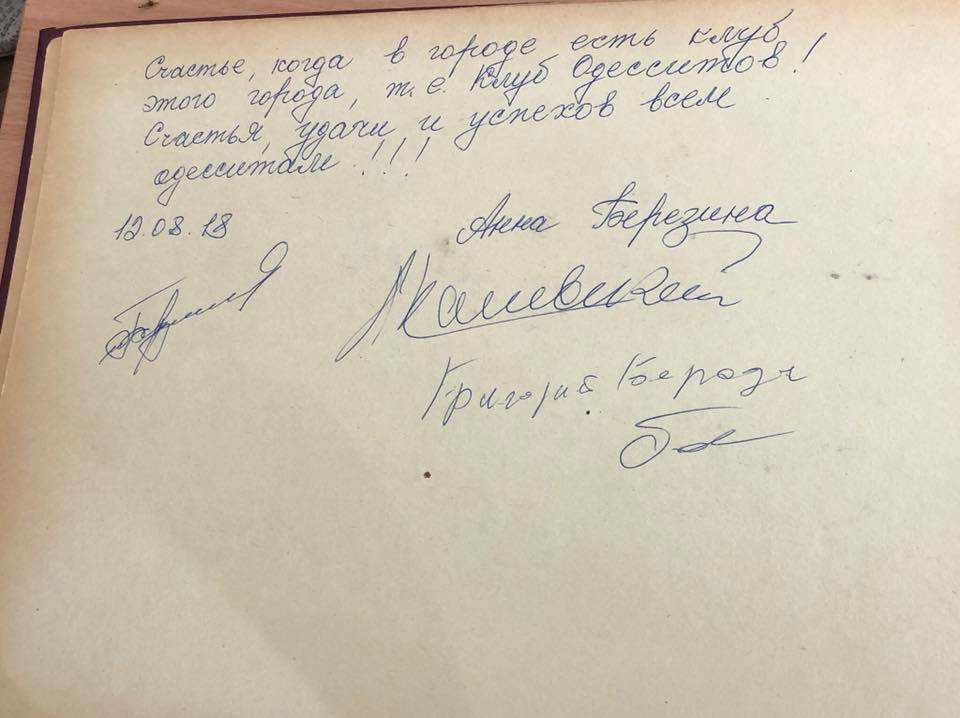 Счастье, когда в городе есть клуб
этого города, т. е. Клуб Одесситов!
Счастья, удачи и успехов всем
одесситам!!!
12.08.18
Анна Березина
Григорий